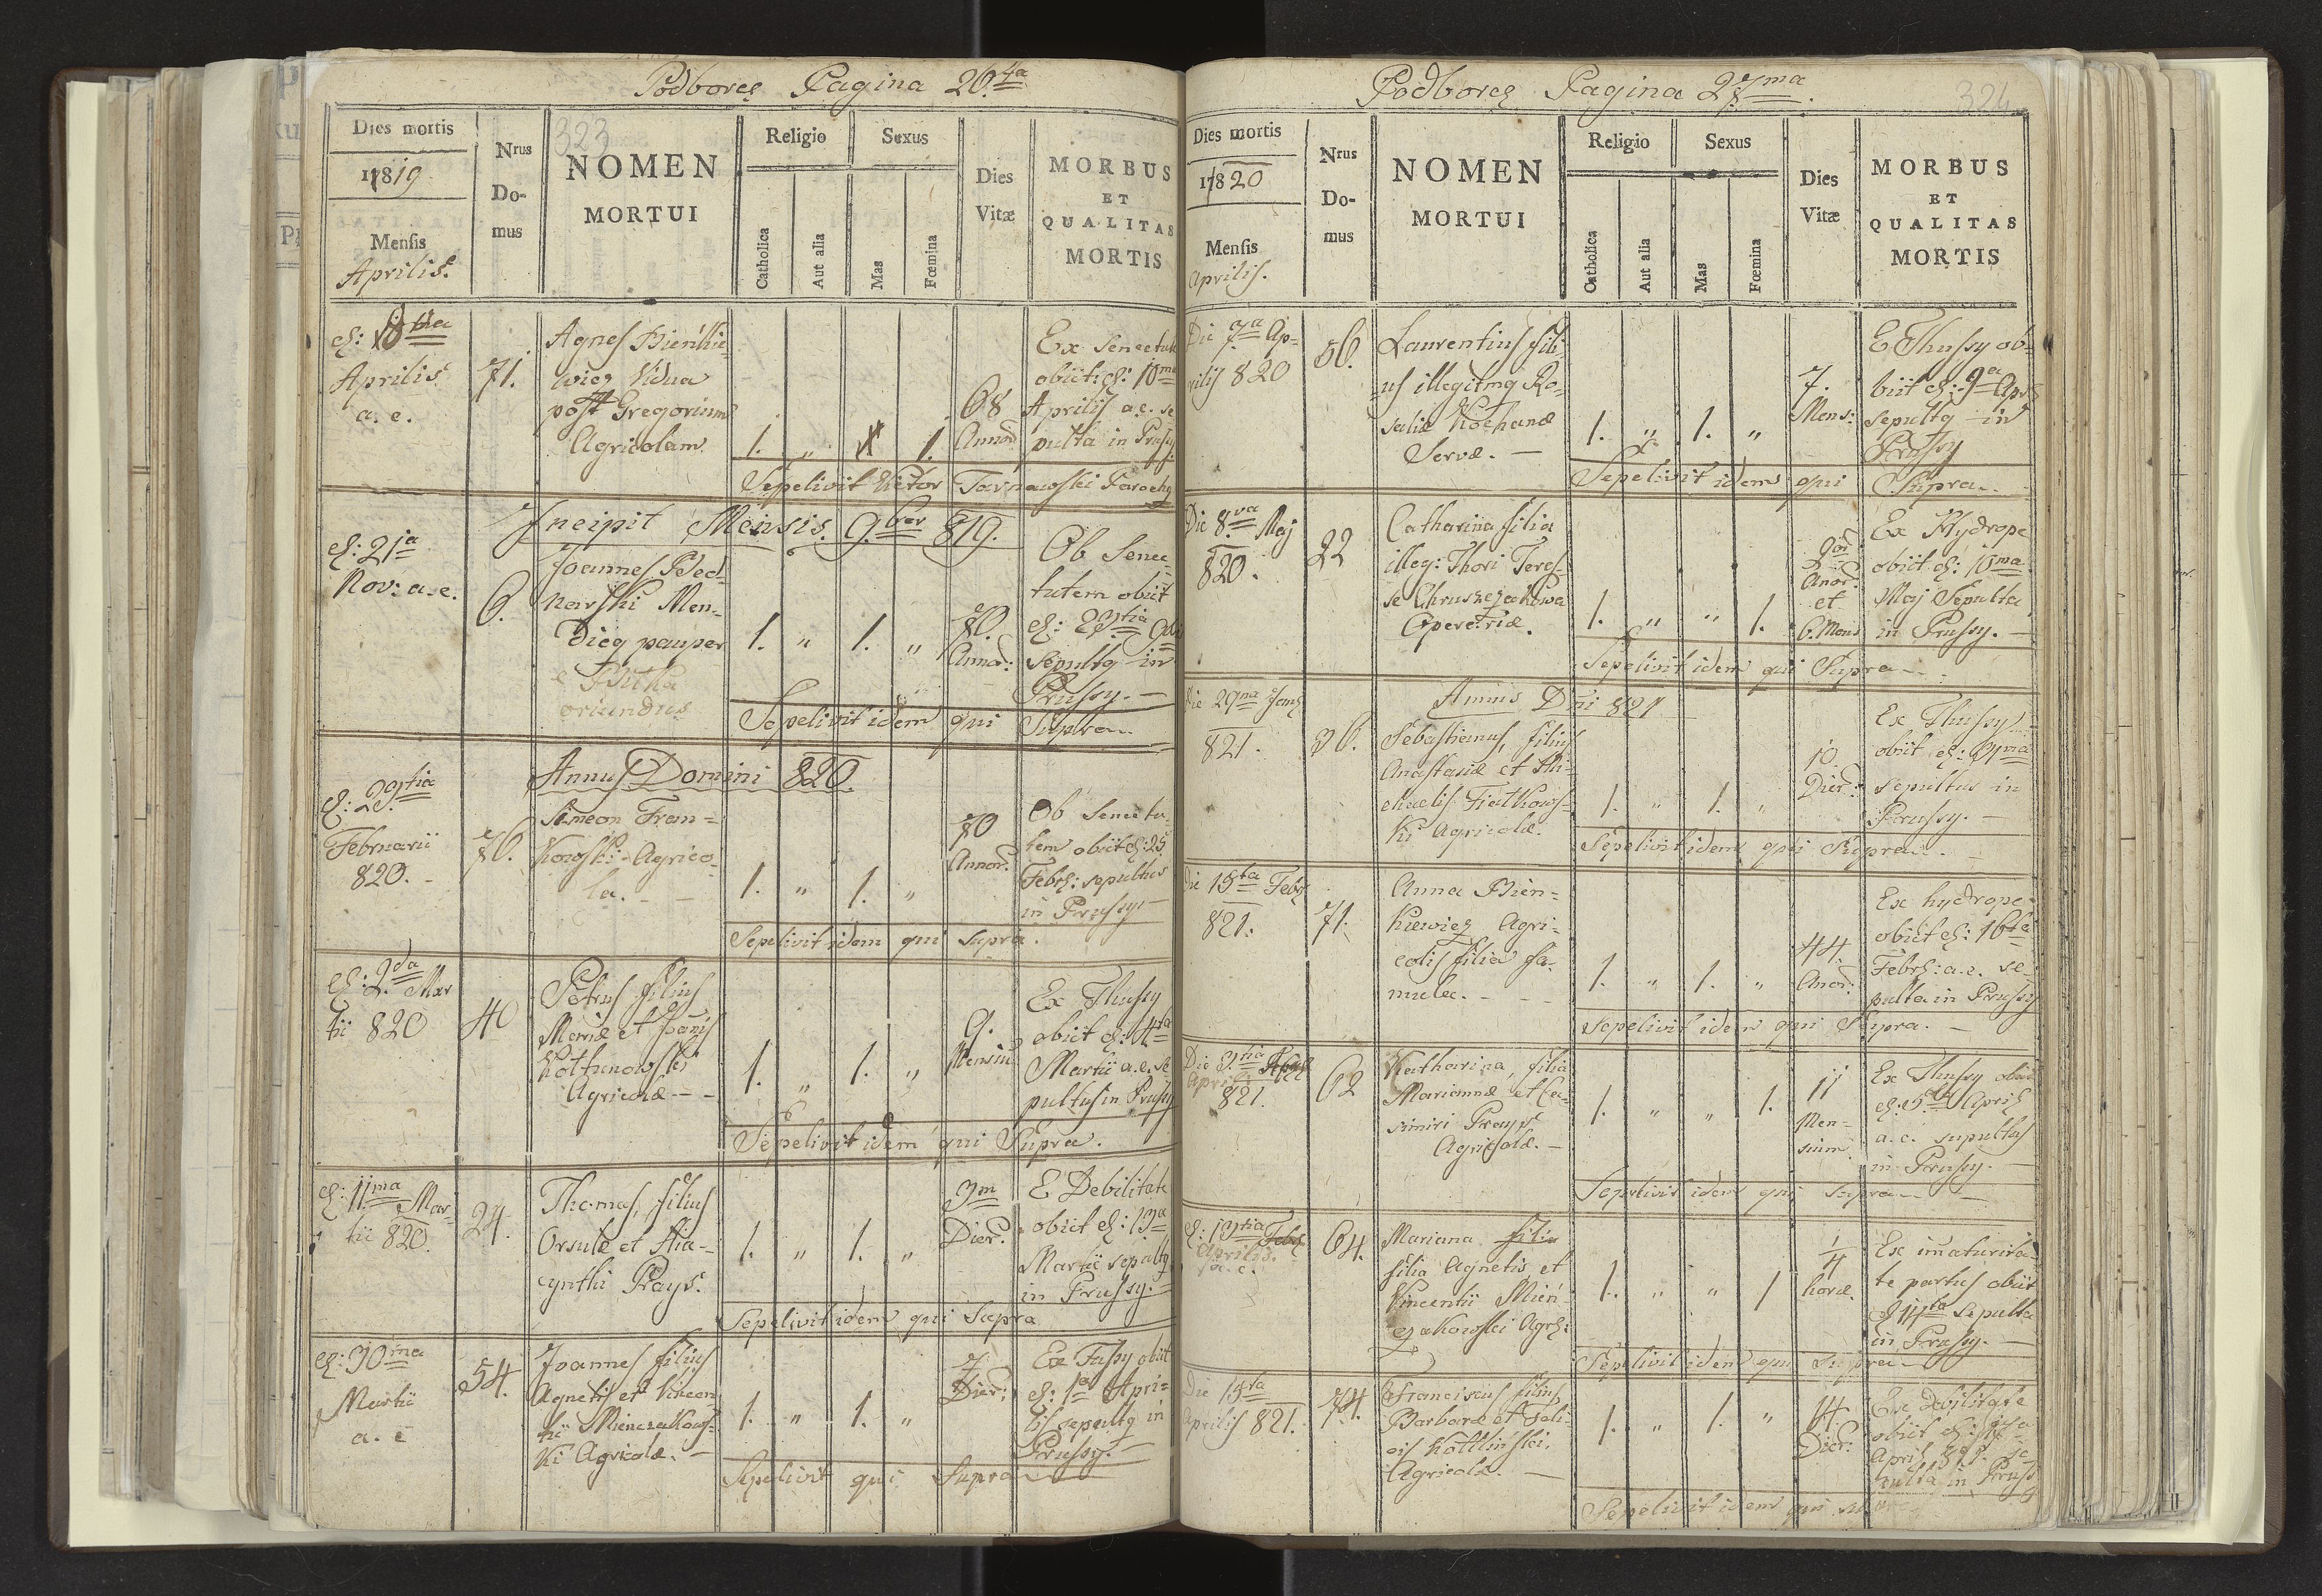 Podborcz Pagina 26.ta
323
Dies mortis
1819
Mensis
Aprilis.
Nrus
Do-
mus
NOMEN
MORTUI
Religio
Catholica
Aut alia
Sexus
Mas
Fœmina
Dies
Vitæ
MORBUS
ET
QUALITAS
MORTIS
Aprilis
a. e.
71.
Agnes Bienkie-
wicz Vidua
post Gregorium
Agricolam
1. „ 1.
68
Annor.
Ex Senectute
obiit d: 10ma
Aprilis a.e. se
pulta in Prusy.
Sepelivit Victor Tarnawski Parochg
Incipit Mensis 9.ber 819.
d: 21a
Nov: a. e.
6.
Joannes Bed-
narski Men-
dicg pauper
oriundus
1. „ 1. „
80.
Annor:
Ob Senec-
tutem obiit
d: 23tia 9bris
Sepultg in
Prusy. —
Sepelivit idem qui Supra.
Annus Domini 820.
d: 23tia
Februarii
820. -
76.
Simeon Fran=
kowski Agrico-
la. - -
1. „ 1. „
80
Annor.
Ob Senectu-
tem obiit d: 25
Febr: sepultus
in Prusy —
Sepelivit idem qui supra.
d: 2da Mar
tii 820
40
Petrus filius
Mariæ et Joanis
Koltunowski
Agricolæ - -
1. „ 1. „
9.
Mensiu
Ex Thussy
obiit d: 4ta
Martii a.e. se
pultus in Prusy
Sepelivit idem qui Supra.
d: 11ma Mar-
tii 820.
24.
Thomas, filius
Orsulæ et Hia-
cynthi Prays.
1. „ 1. „
3m
Dier.
E Debilitate
obiit d: 13a
Martii sepultg
in Prusy. —
Sepelivit idem qui Supra
d: 30ma
Martii
a. e
54.
Joannes filius
Agnetis et Vincen
tii Mienczakows-
ki Agricolæ. —
1. „ 1. „
7
Dier:
Ex Tusy obiit
d: 1a Apri=
lis sepultg in
Prusy. —
Sepelivit qui Supra
Podborcz Pagina 27ma.
324
Dies mortis
17820
Mensis
Aprilis.
Nrus
Do-
mus
NOMEN
MORTUI
Religio
Catholica
Aut alia
Sexus
Mas
Fœmina
Dies
Vitæ
MORBUS
ET
QUALITAS
MORTIS
Die 7a Ap=
rilis 820
56.
Laurentius fili-
us illegitmg Ro-
saliæ Kochanæ
Servæ. —
1. „ 1. „
7.
Mens:
E Thussy ob-
biit d: 9a Apr
sepultg in
Prusy
Sepelivit idem qui Supra.
Die 8va Maj
820.
22
Catharina filia
illeg: Thori Teres-
se Chruszczakowa
Operariæ.
1. „ „ 1.
Anor:
et
6. Mens
Ex Hydrope
obiit d: 10ma
Maj Sepulta
in Prusy. —
Sepelivit idem qui Supra
Annus Dni 821
Die 29na Janr
821.
36.
Sebastianus, filius
Anastasiæ et Mi-
chaelis Fiatkows-
ki Agricolæ.
1. „ 1. „
10.
Dier:
Ex Thussy
obiit d: 31ma
sepultus in
Prusy. —
Sepelivit idem qui Supra.
Die 15ta Febr
821.
71.
Anna Bien=
kiewicz Agri-
colis filia fa-
mula. - - -
1. „ 1. „
44.
Anor:
Ex hydrope
obiit d: 16ta
Febr: a.e. se-
pulta in Prusy
Sepelivit idem qui Supra. —
Die 3tia
Aprilis
821.
62
Katharina, filia
Mariannæ et Ca-
simiri Prays
Agricolæ. —
1. „ „ 1.
11
Men-
sium
Ex Thussy obiit
d: 5ta April
a. e. sepultas
in Prusy. —
Sepelivit idem qui supra —
d: 13tia Febr
Aprilis.
a. e.
64.
Mariana filia
filia Agnetis et
Vincentii Mień-
czakowski Agr:
1. „ „ 1
1/4
horæ.
Ex imaturita-
te partus obiit
d 14ta Sepulta
in Prusy. —
Sepelivit idem qui Supra —
Die 15ta
Aprilis 821.
74.
Franciscus filius
Barbaræ et Feli-
cis Kottlinski,
Agricolæ. —
1. „ 1. „
14
Dier:
Ex debilitate
obiit d:
April se-
pulta in Prusy
Sepelivit idem qui supra